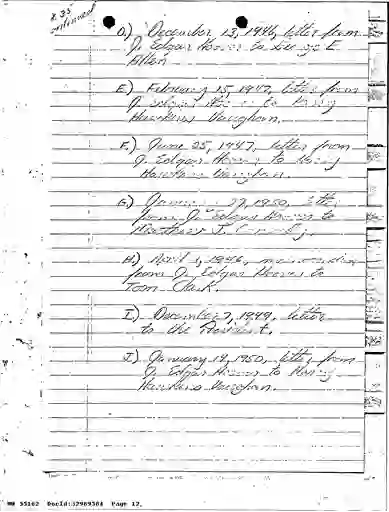 continued
D.) December 13, 1946, letter from
J. Edgar Hoover to George E.
Allen
E.) February 15, 1947, letter from
J. Edgar Hoover to Harry
Hawkins Vaughan.
F.) June 25, 1947, letter from
J. Edgar Hoover to Harry
Hawkins Vaughan.
G.) 27, 1950, letter
from J. Edgar Hoover to
Matthew J.
H.) April 1, 1946, memorandum
from J. Edgar Hoover to
Tom Clark.
I.) December 7, 1949, letter
to the President.
J.) January 19, 1950, letter from
J. Edgar Hoover to Harry
Hawkins Vaughan.
NW 55162 DocId:32989304 Page 12